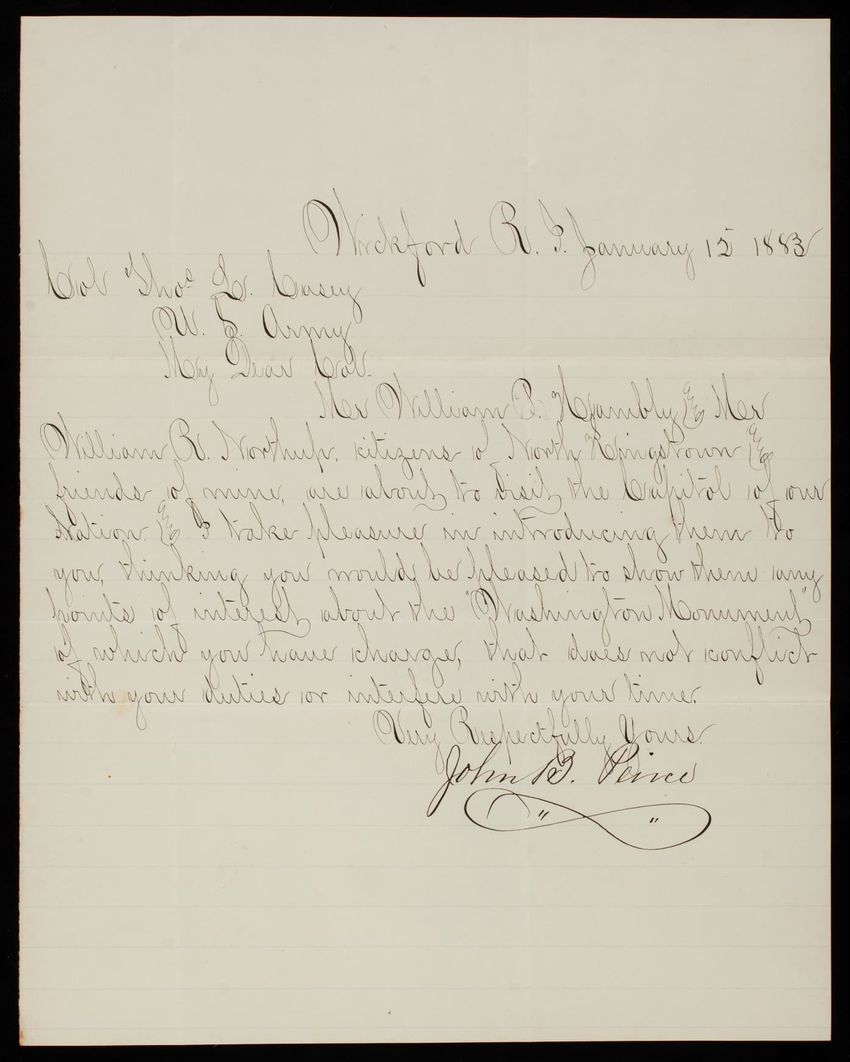 Wickford R. I. January 15 1883
Col Thos L. Casey
U. S. Army
My Dear Col.
Mr William P. Hambly & Mr
William R. Northup. citizens of North Kingstown &
friends of mine, are about to visit the Capitol of our
Nation & I take pleasure in introducing them to
you, thinking you would be pleased to show them any
points of interest about the "Washington Monument",
of which you have charge, that does not conflict
with your duties or interfere with your time.
Very Respectfully Yours.
John B. Peirce